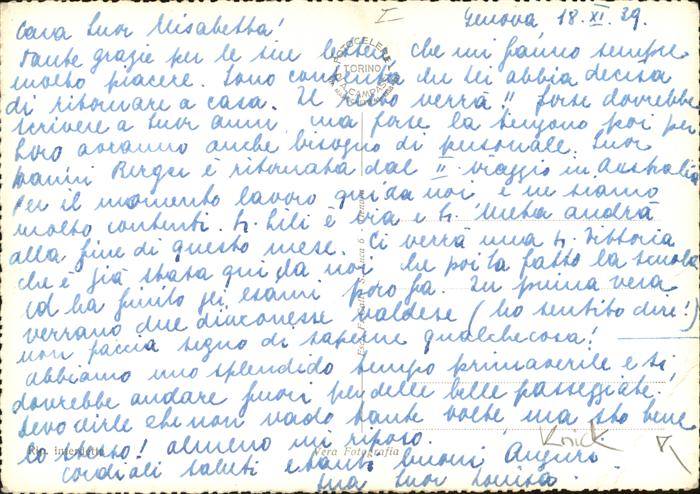 Genova, 18. XI. 59.
Cara Suor Elisabetta!
Tante grazie per le sue lettere che mi fanno sempre
molto piacere. Sono contenta che lei abbia decisa
di ritornare a casa. Il verrà!! forse dovrebbe
scrivere a Suor anni, ma forse la tengono poi per
loro avranno anche bisogno di personale. Suor
Berger è ritornata dal II viaggio in Australia
Per il momento lavoro qui da noi e ne siamo
molto contenti. Lili è via e Meta andrà
alla fine di questo mese. Ci verrà una Vittoria
che è già stata qui da noi che poi ha fatto la scuola
ed ha finito gli esami poco fa. In prima vera
verrano due diaconesse valdese (ho sentito dire!)
non faccia segno di saperne qualchecosa!
abbiamo uno splendido tempo primaverile e si
dovrebbe andare fuori per delle belle passegiate.
Devo dirle che non vado tante volte, ma sto bene
lo stesso! almeno mi riposo.
Cordiali saluti e tanti buoni Auguri
sua Suor Louisa.
Knick
I
FOTOCELERE
TORINO
DI CAMPASSI
Rip. interdetta
Vera Fotografia